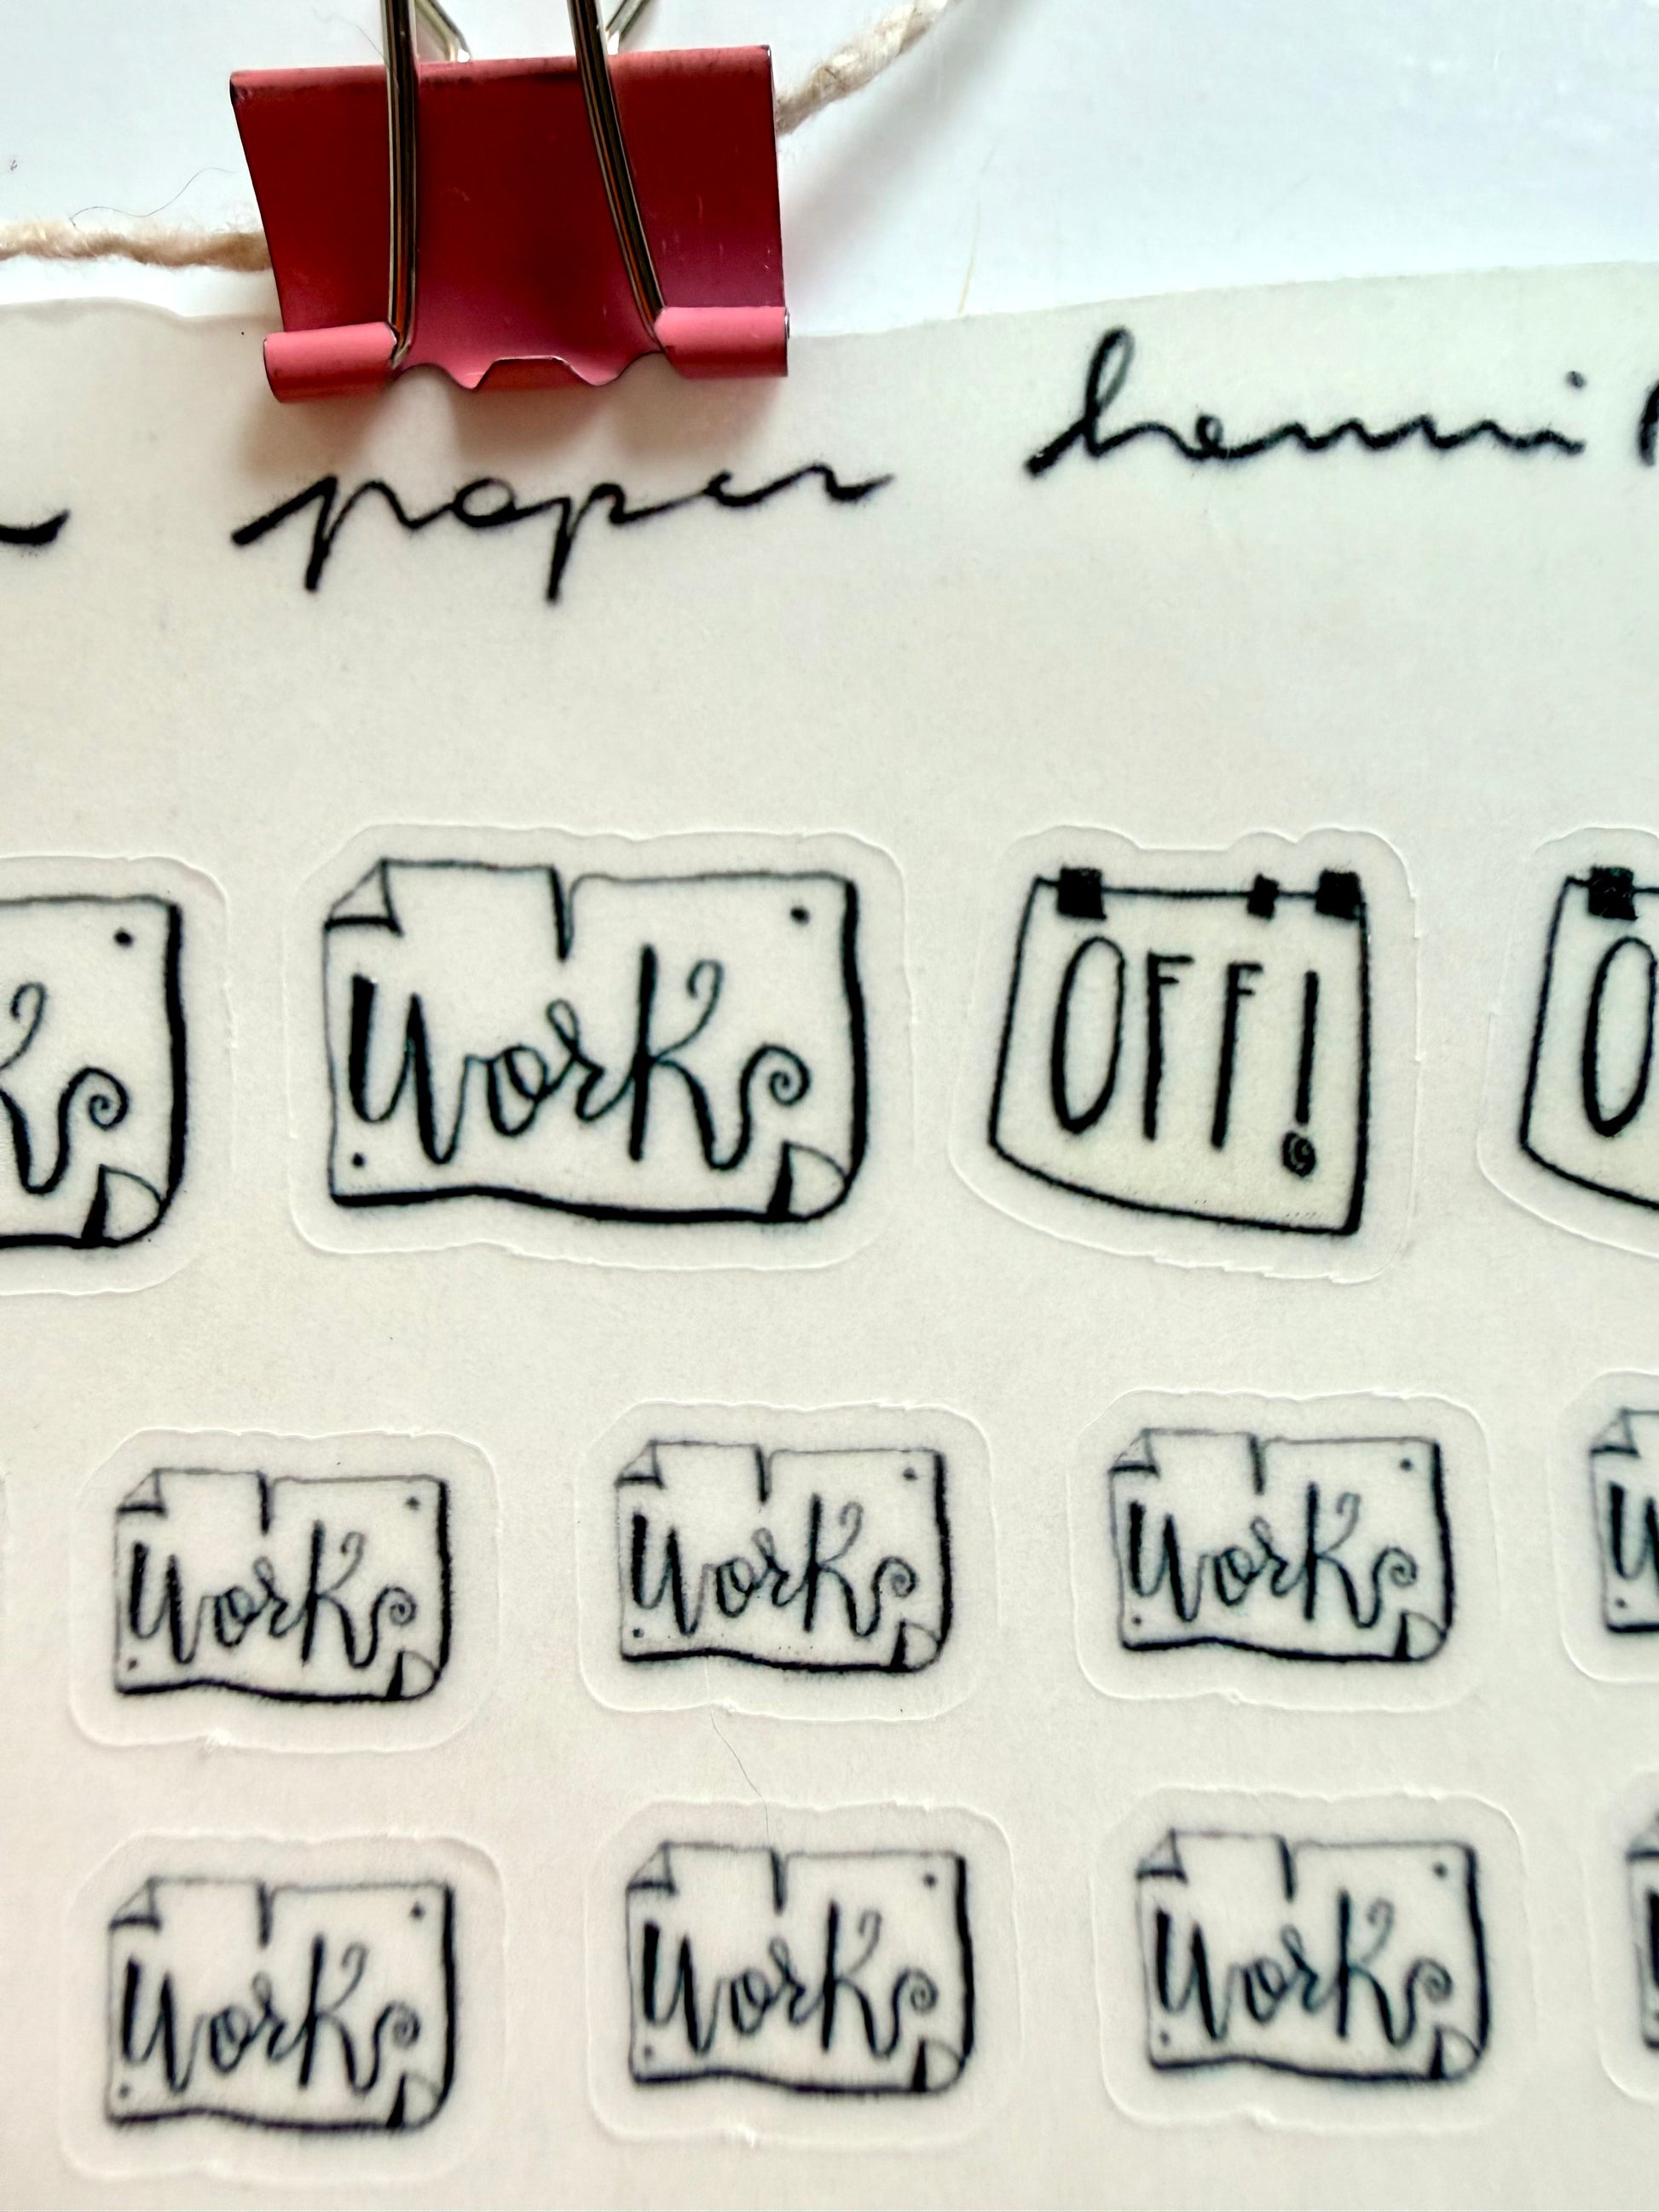 paper henni
Work OFF!
Work Work Work
Work Work Work